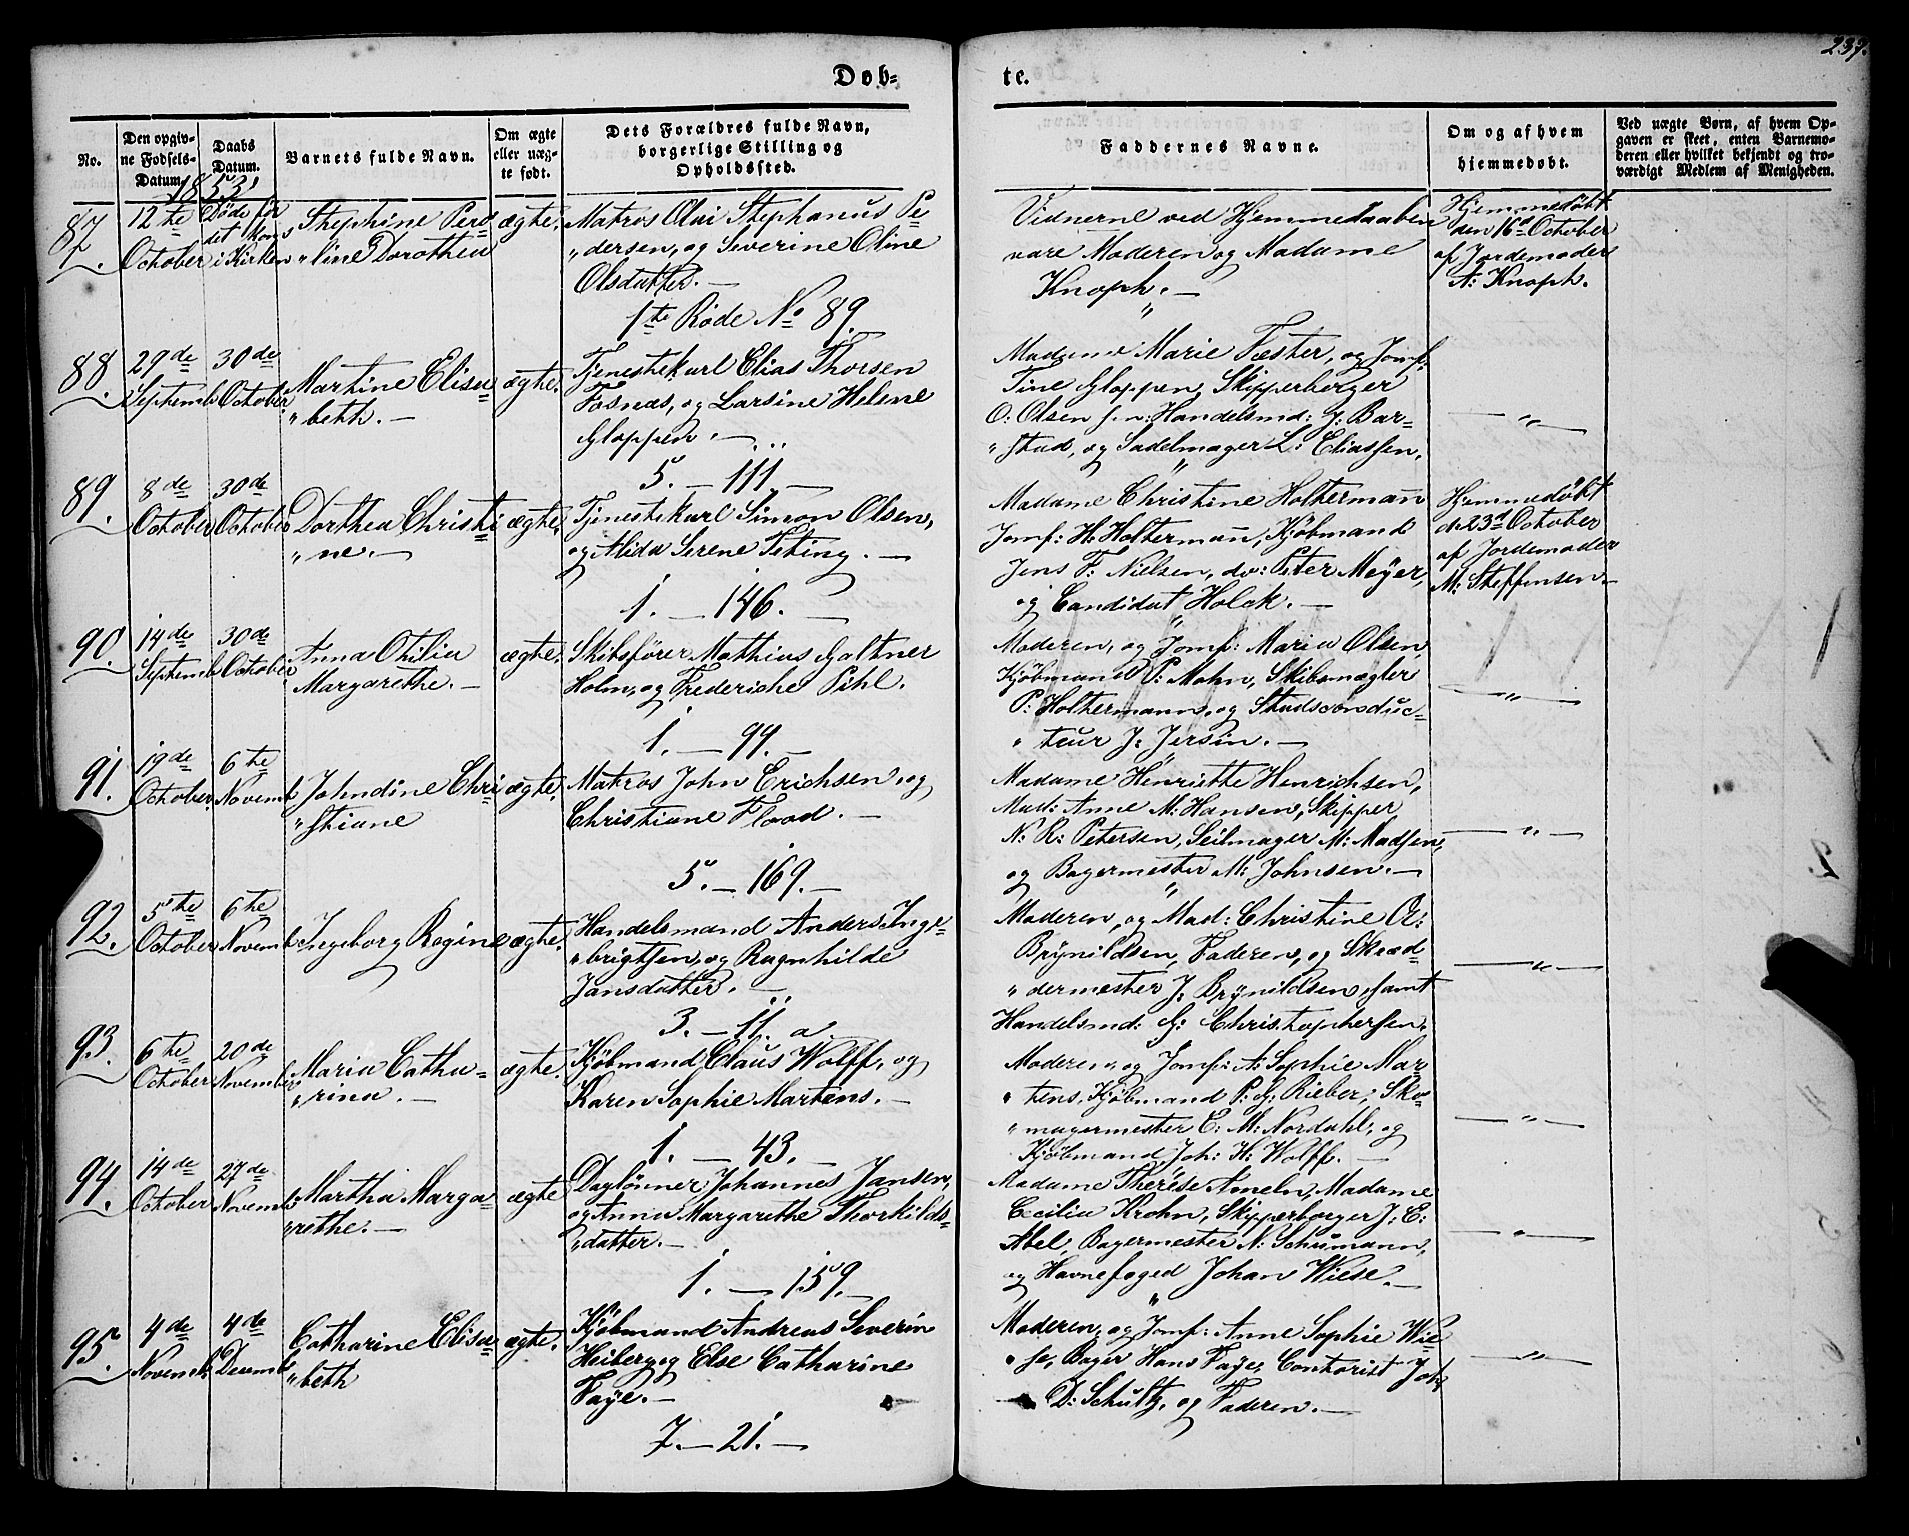 239.
Døb-
te.
No.
Den opgiv-
ne Fødsels-
Datum.
Daabs
Datum.
Barnets fulde Navn.
Om ægte
eller uæg-
te født.
Dets Forældres fulde Navn,
borgerlige Stilling og
Opholdssted.
Faddernes Navne.
Om og af hvem
hjemmedøbt.
Ved uægte Børn, af hvem Op-
gaven er skeet, enten Barnemo-
deren eller hvilket bekjendt og tro-
værdigt Medlem af Menigheden.
1853.
87.
12te
October
Døde før
det kom
i Kirken
Stephine Pero
"line Dorothea
ægte.
Matros Olai Stephanus Pe
"dersen, og Severine Oline
Olsdatter.—
1te Rode No 89.
Vidnerne ved Hjemmedaaben
vare Moderen og Madame
Knoph.—
Hjemmedøbt
den 16d October
af Jordemoder
A: Knoph.
88.
29de
Septemb
30de
October
Martine Elisa
"beth.—
ægte.
Tjenestekarl Elias Thorsen
Fosnæs, og Larsine Helene
Gloppen.—
5.—111.—
Madame Marie Fæster, og Jomf:
Tine Gloppen, Skipperborger
O: Olsen, Handelsmd: J: Bar-
"stad, og Sadelmager L: Eliassen,
—"—
89.
8de
October
30de
October
Dorthea Christi
"ne.—
ægte.
Tjenestekarl Simon Olsen,
og Alida Serene Teting.—
1.—146.—
Madame Christine Holtermann
Jomf: H: Holtermann, Kjøbmand
Jens F: Nielsen, do: Peter Meyer,
og Candidat Holck.—
Hjemmedøbt
d. 23d October
af Jordemoder
M: Steffensen.
90.
14de
Septemb
30de
October
Anna Otilia
Margarethe.—
ægte.
Skibsfører Mathias Galtner
Holm, og Frederiche Pihl.
1.—99.—
Moderen, og Jomf: Maria Olsen,
Kjøbmand P: Mohn, Skibsmægler
P: Holtermann, og Stadsconduc-
"teur J: Jersin.—
—"—
91.
19de
October
6te
Novemb
Johndine Chri
"stiane
ægte.
Matros John Erichsen, og
Christiane Flood.—
5.—169.—
Madame Henriette Henrichsen,
Mad: Anne M: Hansen, Skipper
N: R: Petersen, Seilmager M: Madsen,
og Bagermester M: Johnsen.—
—"—
92.
5te
October
6te
Novemb
Ingeborg Regine
ægte.
Handelsmand Anders Inge-
"brigtsen, og Ragnhilde
Jansdatter.—
3.—11. a.
Moderen, og Mad: Christine
Brynildsen, Faderen, og Skræd-
"dermester J: Brynildsen samt
Handelsmd: G: Christophersen.
—"—
93.
6te
October
20de
November
Maria Catha-
"rina.—
ægte.
Kjøbmand Claus Wolff, og
Karen Sophie Martens.—
1.—43.—
Moderen, og Jomf: A: Sophie Mar-
"tens, Kjøbmand P: G: Rieber, Sko-
"magermester C: M: Nordahl, og
Kjøbmand Joh: H: Wolff.—
—"—
94.
14de
October
27de
Novemb
Martha Marga
"rethe.—
ægte
Daglønner Johannes Jansen,
og Anna Margarethe Thorkilds-
"datter.—
1.—159.—
Madame Therese Ameln, Madame
Cecilia Krohn, Skipperborger J: C:
Abel, Bagermester N: Schumann,
og Havnefoged Johan Wiese.—
—"—
95.
4de
Novemb
4de
Decemb
Catharine Elisa-
"beth
ægte.
Kjøbmand Andreas Severin
Heiberg, og Else Catharine
Faye.—
7.—21.—
Moderen, og Jomf: Anne Sophie Wie
"se, Bager Hans Faye, Contorist Joh:
D: Schultz, og Faderen.—
—"—